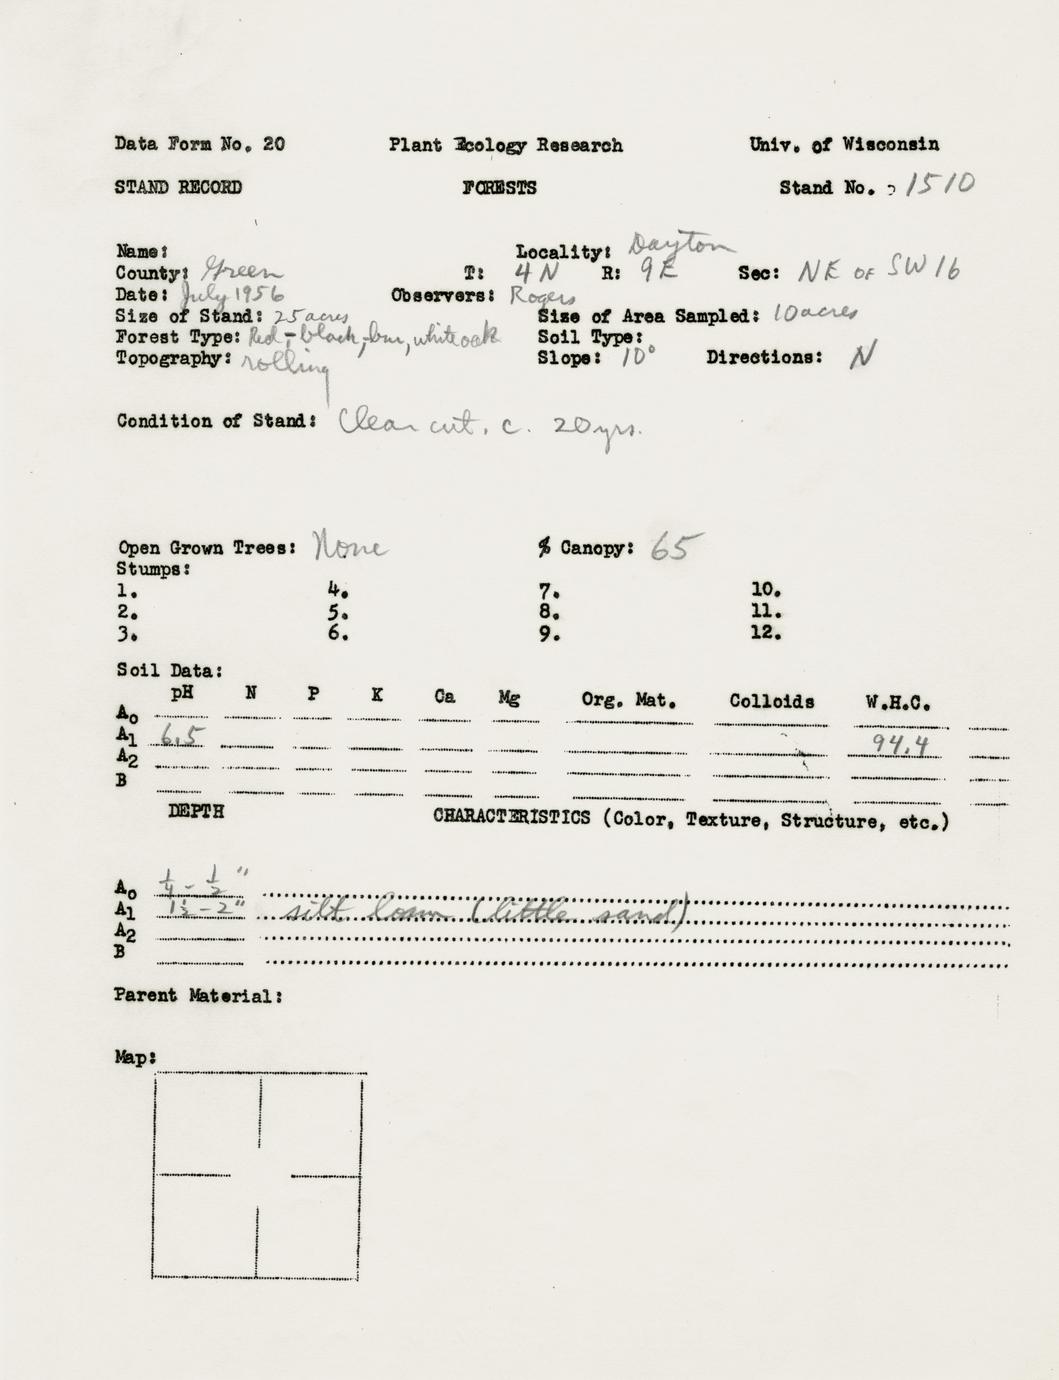 Data Form No. 20 Plant Ecology Research Univ. of Wisconsin
STAND RECORD FORESTS Stand No. 1510
Name: Locality: Dayton
County: Green T: 4 N R: 9 E Sec: NE OF SW 16
Date: July 1956 Observers: Rogers
Size of Stand: 25 acres Size of Area Sampled: 10 acres
Forest Type: Red-, black-, bur, white oak Soil Type:
Topography: rolling Slope: 10° Directions: N
Condition of Stand: Clear cut. c. 20 yrs.
Open Grown Trees: None % Canopy: 65
Stumps:
1. 4. 7. 10.
2. 5. 8. 11.
3. 6. 9. 12.
Soil Data:
pH N P K Ca Mg Org. Mat. Colloids W.H.C.
A0
A1 6.5 94.4
A2
B
DEPTH CHARACTERISTICS (Color, Texture, Structure, etc.)
A0 1/4 - 1/2"
A1 1½ - 2" silt loam (little sand)
A2
B
Parent Material:
Map: